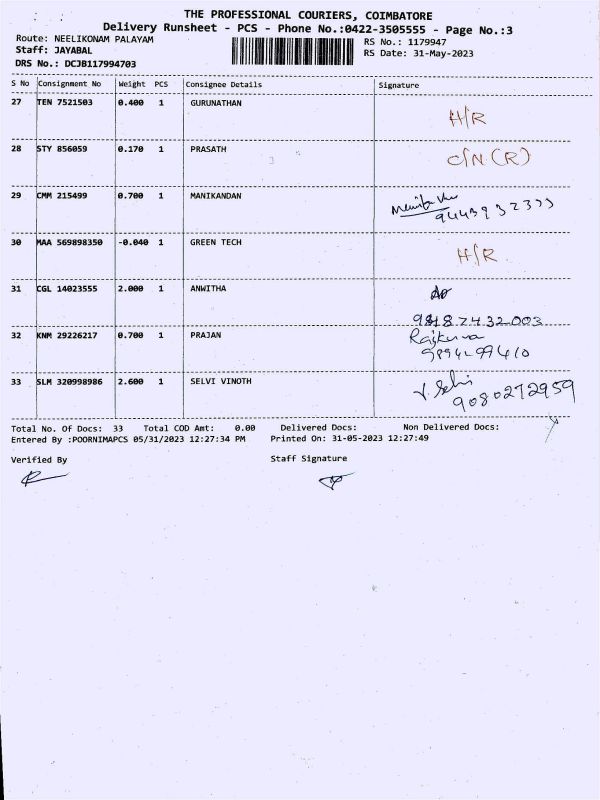 THE PROFESSIONAL COURIERS, COIMBATORE
Delivery Runsheet - PCS - Phone No.:0422-3505555 - Page No.:3
Route: NEELIKONAM PALAYAM
RS No.: 1179947
Staff: JAYABAL
RS Date: 31-May-2023
DRS No.: DCJB117994703
S No Consignment No Weight PCS Consignee Details Signature
27 TEN 7521503 0.400 1 GURUNATHAN H/R
28 STY 856059 0.170 1 PRASATH C/N (R)
29 CMM 215499 0.700 1 MANIKANDAN
30 MAA 569898350 -0.040 1 GREEN TECH H/R
31 CGL 14023555 2.000 1 ANWITHA
32 KNM 29226217 0.700 1 PRAJAN
33 SLM 320998986 2.600 1 SELVI VINOTH V. Selvi
9080272959
Total No. Of Docs: 33 Total COD Amt: 0.00 Delivered Docs: Non Delivered Docs:
Entered By :POORNIMAPCS 05/31/2023 12:27:34 PM Printed On: 31-05-2023 12:27:49
Verified By Staff Signature